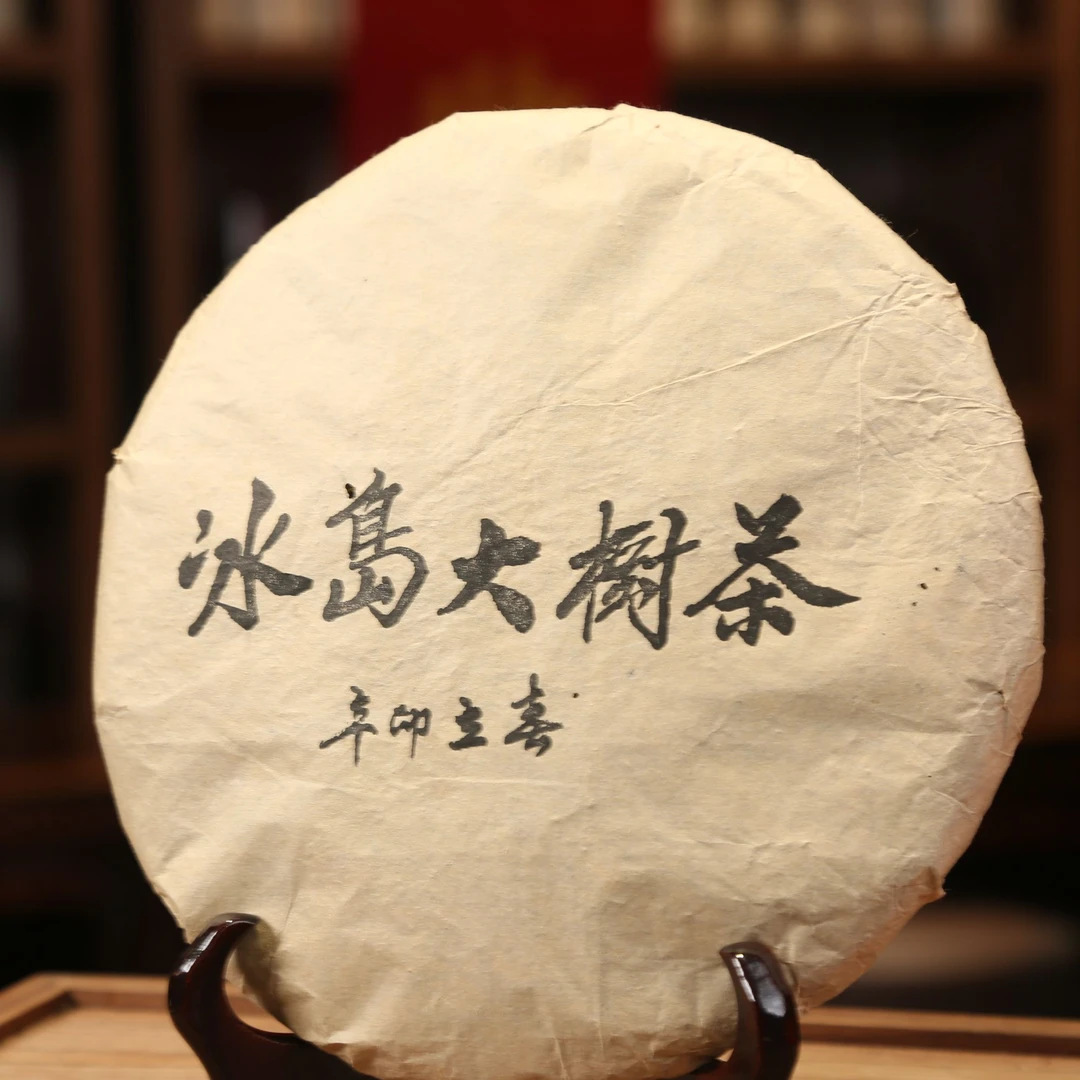 冰島大樹茶
辛卯立春